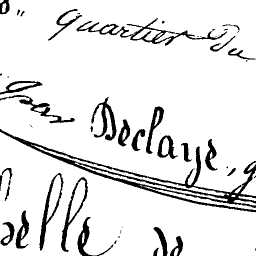 quartier Du
par Declaye,
belle de